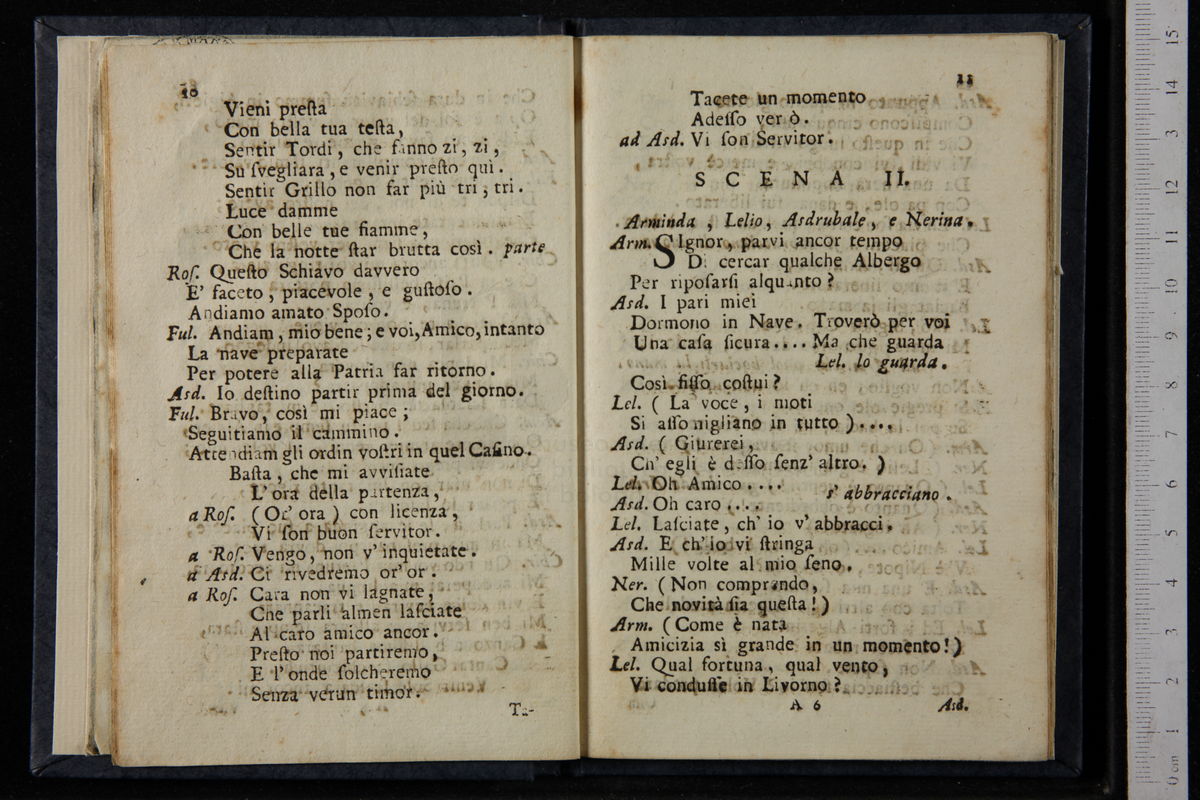 10
Vieni preſta
Con bella tua teſta,
Sentir Tordi, che fanno zi, zi,
Su ſvegliara, e venir preſto quì.
Sentir Grillo non far più tri, tri.
Luce damme
Con belle tue fiamme,
Che la notte ſtar brutta così. parte
Roſ. Queſto Schiavo davvero
E' faceto, piacevole, e guſtoſo.
Andiamo amato Spoſo.
Ful. Andiam, mio bene; e voi, Amico, intanto
La nave preparate
Per potere alla Patria far ritorno.
Asd. Io deſtino partir prima del giorno.
Ful. Bravo, così mi piace;
Seguitiamo il cammino.
Attendiam gli ordin voſtri in quel Caſino.
Baſta, che mi avviſiate
L'ora della partenza,
a Roſ. (Or' ora) con licenza,
Vi ſon buon ſervitor.
a Roſ. Vengo, non v'inquietate.
a Asd. Ci rivedremo or' or.
a Roſ. Cara non vi lagnate,
Che parli almen laſciate
Al caro amico ancor.
Preſto noi partiremo,
E l'onde ſolcheremo
Senza verun timor.
Ta-
11
Tacete un momento
Adeſſo verò.
ad Asd. Vi ſon Servitor.
SCENA II.
Arminda, Lelio, Asdrubale, e Nerina.
Arm. SIgnor, parvi ancor tempo
Di cercar qualche Albergo
Per ripoſarſi alquanto?
Asd. I pari miei
Dormono in Nave. Troverò per voi
Una caſa ſicura.... Ma che guarda
Lel. lo guarda.
Così fiſſo coſtui?
Lel. (La voce, i moti
Si aſſomigliano in tutto)....
Asd. (Giurerei,
Ch' egli è deſſo ſenz' altro.)
Lel. Oh Amico....
s' abbracciano.
Asd. Oh caro....
Lel. Laſciate, ch' io v' abbracci.
Asd. E ch' io vi ſtringa
Mille volte al mio ſeno.
Ner. (Non comprendo,
Che novità ſia queſta!)
Arm. (Come è nata
Amicizia sì grande in un momento!)
Lel. Qual fortuna, qual vento,
Vi conduſſe in Livorno?
A 6
Asd.
0 cm 1 2 3 4 5 6 7 8 9 10 11 12 13 14 15